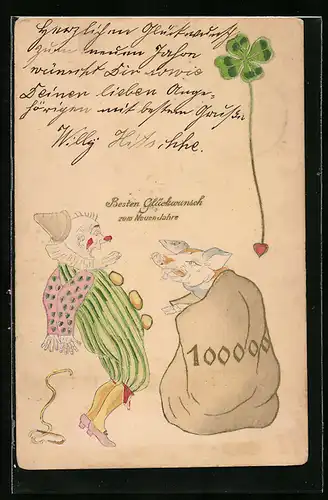 Herzlichen Glückwunsch
zum neuen Jahre
wünscht Dir sowie
Deinen lieben Ange-
hörigen mit bestem Gruße
Willy
Besten Glückwunsch
zum Neuen Jahre
100000